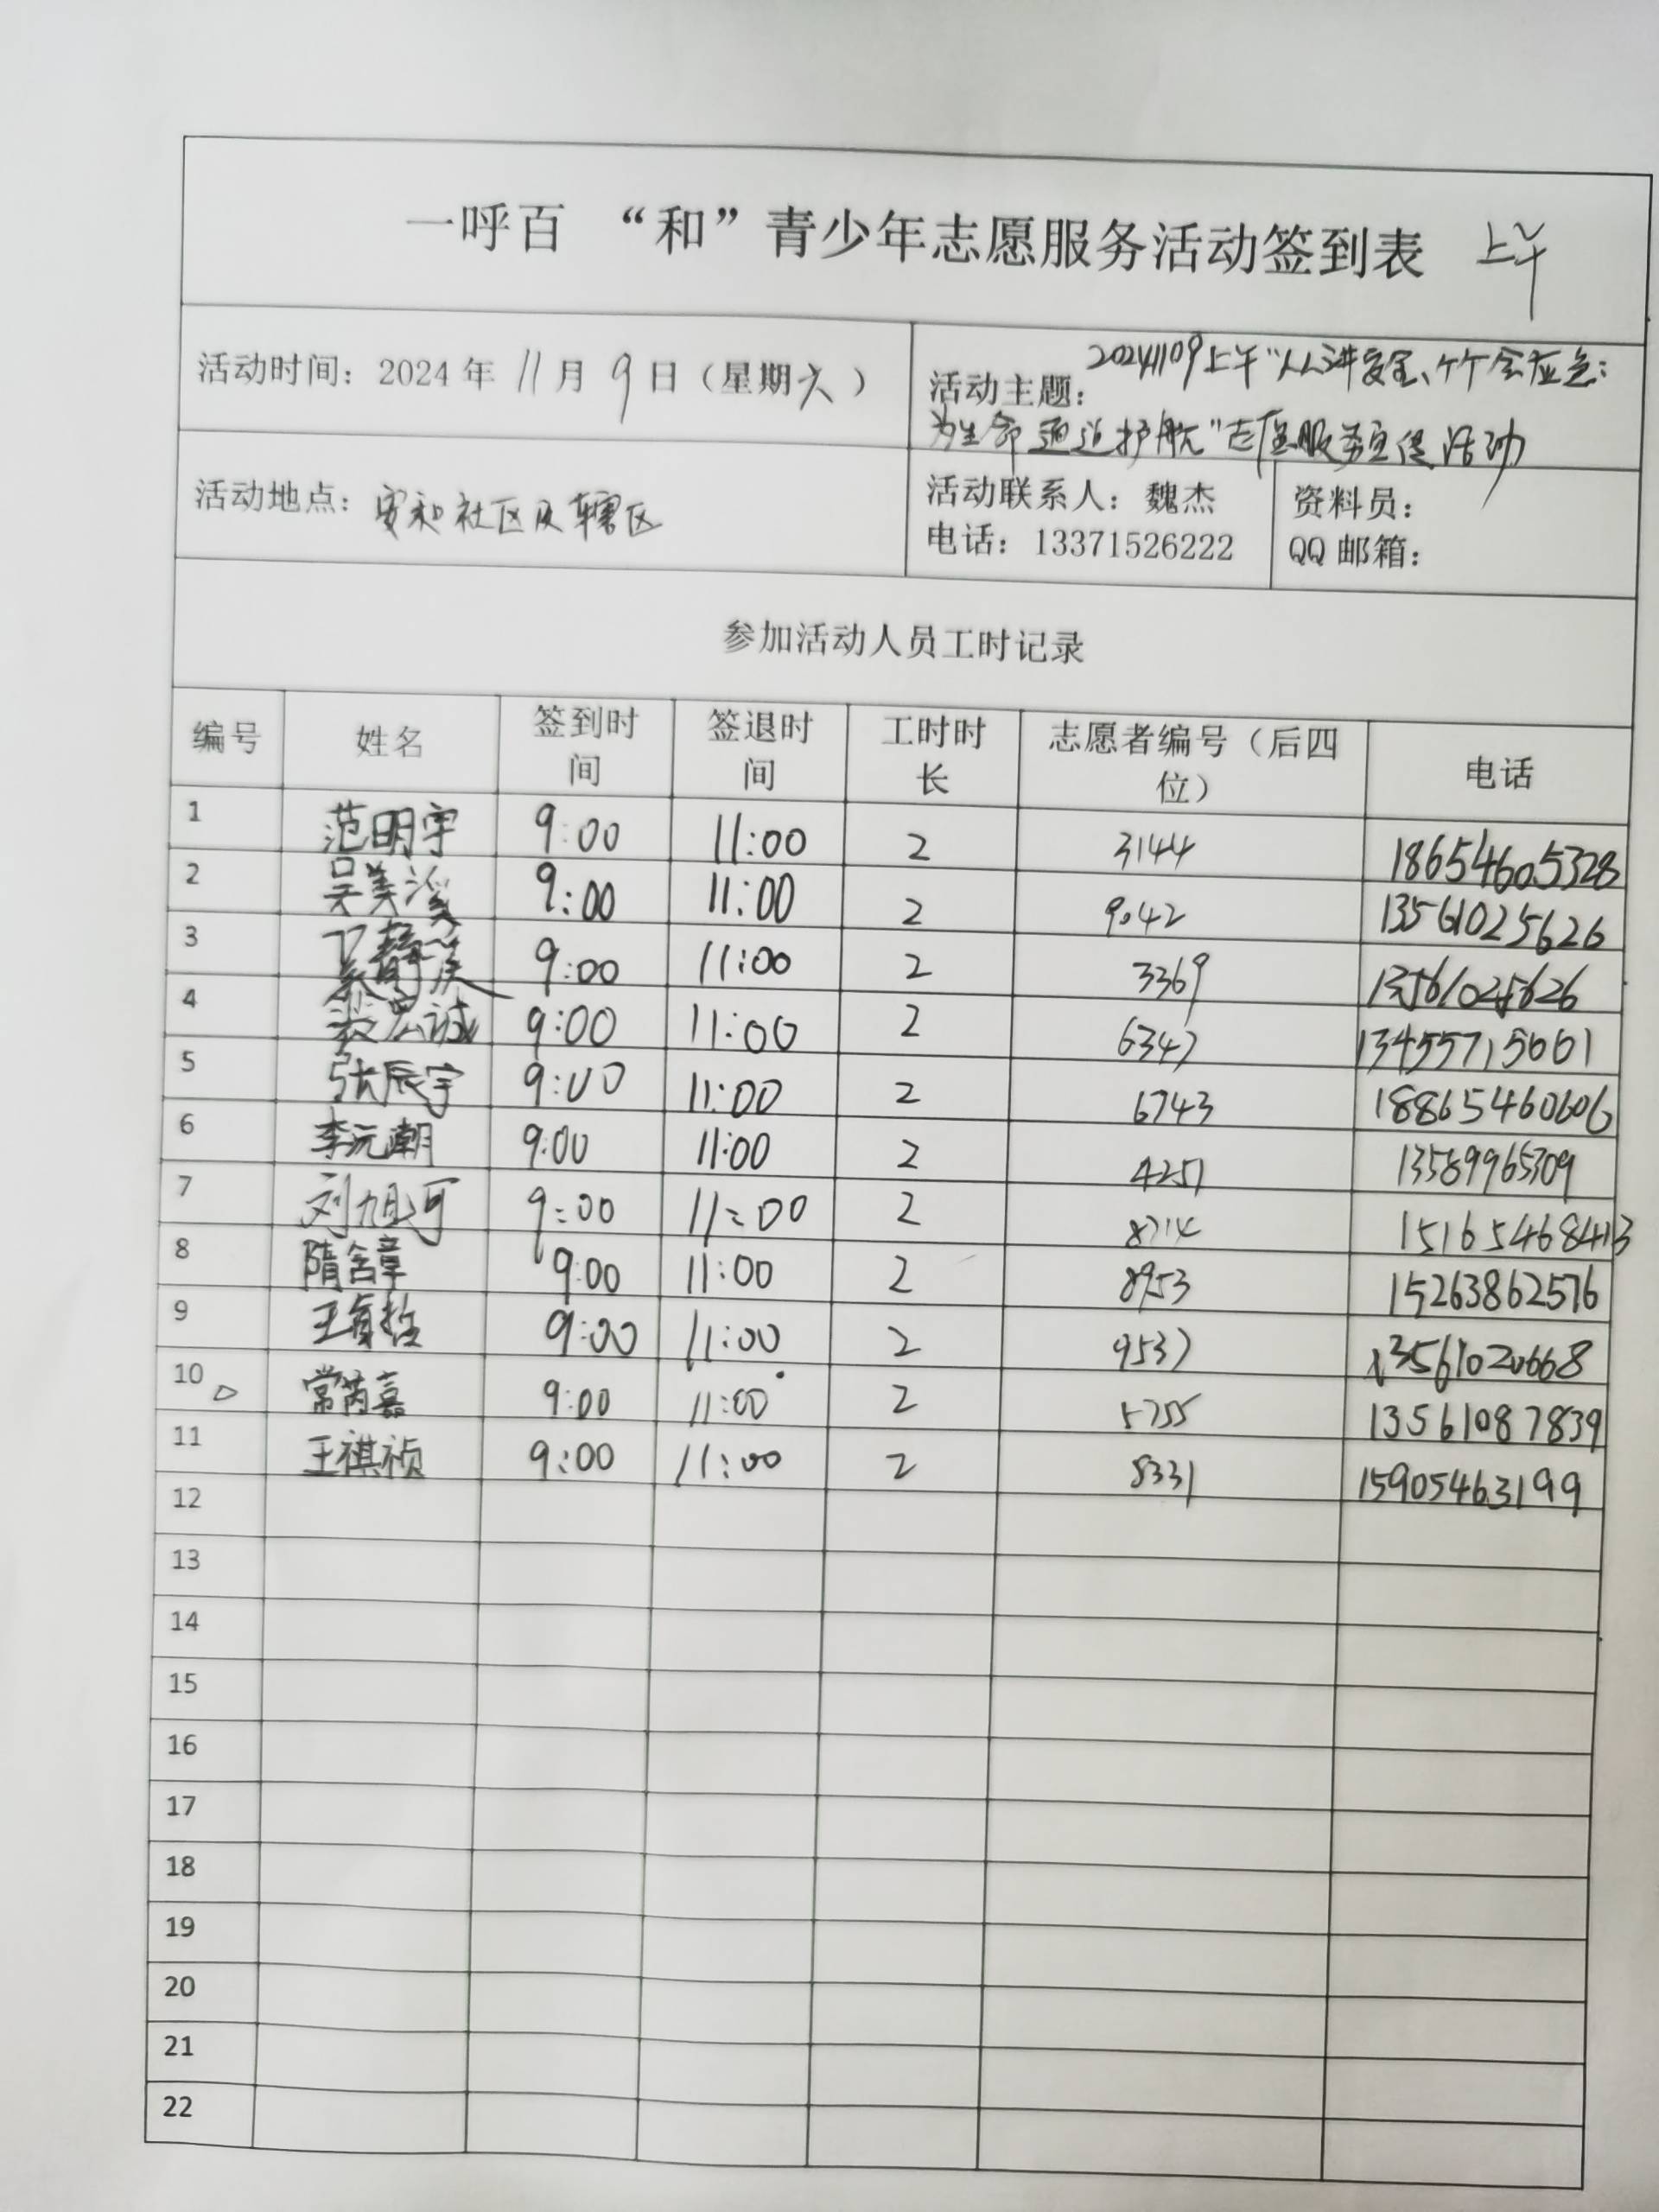 一呼百 “和”青少年志愿服务活动签到表 上午
活动时间：2024年 11月 9日（星期六）
活动主题：20241109上午“人人讲安全、个个会应急：
为生命通道护航”志愿服务宣传活动
活动地点：安和社区及辖区
活动联系人：魏杰
电话：13371526222
资料员：
QQ邮箱：
参加活动人员工时记录
编号 姓名 签到时间 签退时间 工时时长 志愿者编号（后四位） 电话
1 范明宇 9:00 11:00 2 3144 18654605328
2 吴美溪 9:00 11:00 2 9042 13561025626
3 9:00 11:00 2 3369 13561025626
4 9:00 11:00 2 6347 13455715661
5 张辰宇 9:00 11:00 2 6743 18865460606
6 李沅潮 9:00 11:00 2 4251 13589965309
7 刘旭可 9:00 11:00 2 8714 15165468413
8 隋含章 9:00 11:00 2 8953 15263862576
9 9:00 11:00 2 9537 13561020668
10 常芮嘉 9:00 11:00 2 5755 13561087839
11 王祺祯 9:00 11:00 2 8331 15905463199
12
13
14
15
16
17
18
19
20
21
22